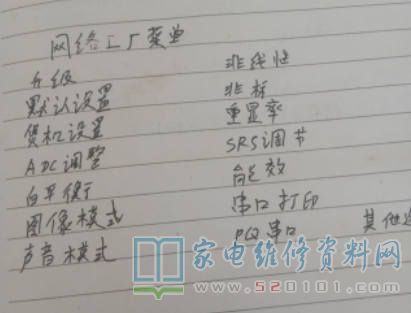 网络工厂菜单
升级
默认设置
货机设置
ADC调整
白平衡
图像模式
声音模式
非线性
非标
重显率
SRS调节
能效
串口打印
PQ串口
其他
家电维修资料网
www.520101.com